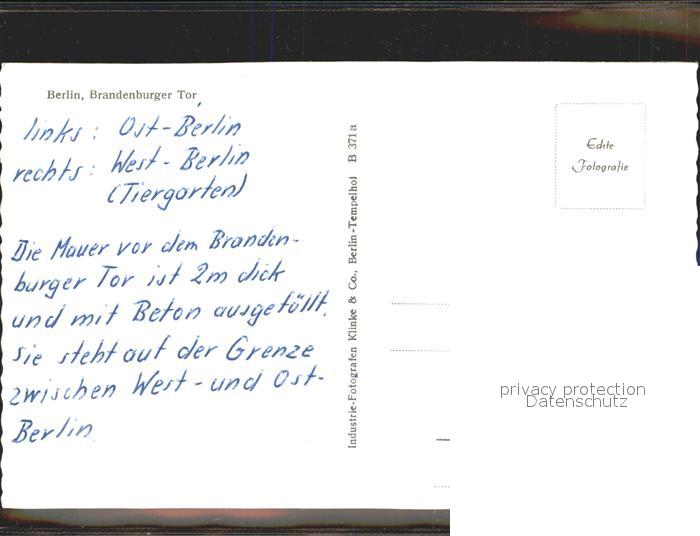 Berlin, Brandenburger Tor
links: Ost-Berlin
rechts: West-Berlin
(Tiergarten)
Die Mauer vor dem Branden-
burger Tor ist 2m dick
und mit Beton ausgefüllt.
Sie steht auf der Grenze
zwischen West- und Ost-
Berlin.
Industrie-Fotografen Klinke & Co., Berlin-Tempelhof B 371a
Echte
Fotografie
privacy protection
Datenschutz